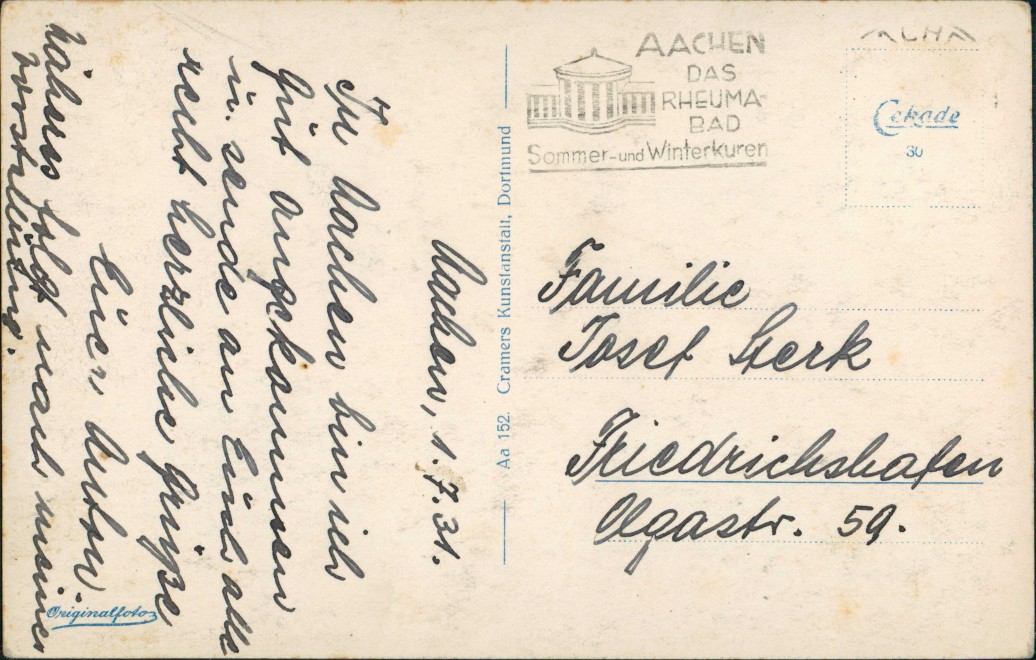 Aachen, 1.7.31.
In Aachen bin ich
gut angekommen
u. sende an Euch alle
recht herzliche Grüße
Euer Anton.
näheres folgt nach meiner
Vorstellung.
Originalfoto
Aa 152. Cramers Kunstanstalt, Dortmund
AACHEN
DAS
RHEUMA-
BAD
Sommer- und Winterkuren
Cekade
30
Familie
Josef Sterk
Friedrichshafen
Olgastr. 59.